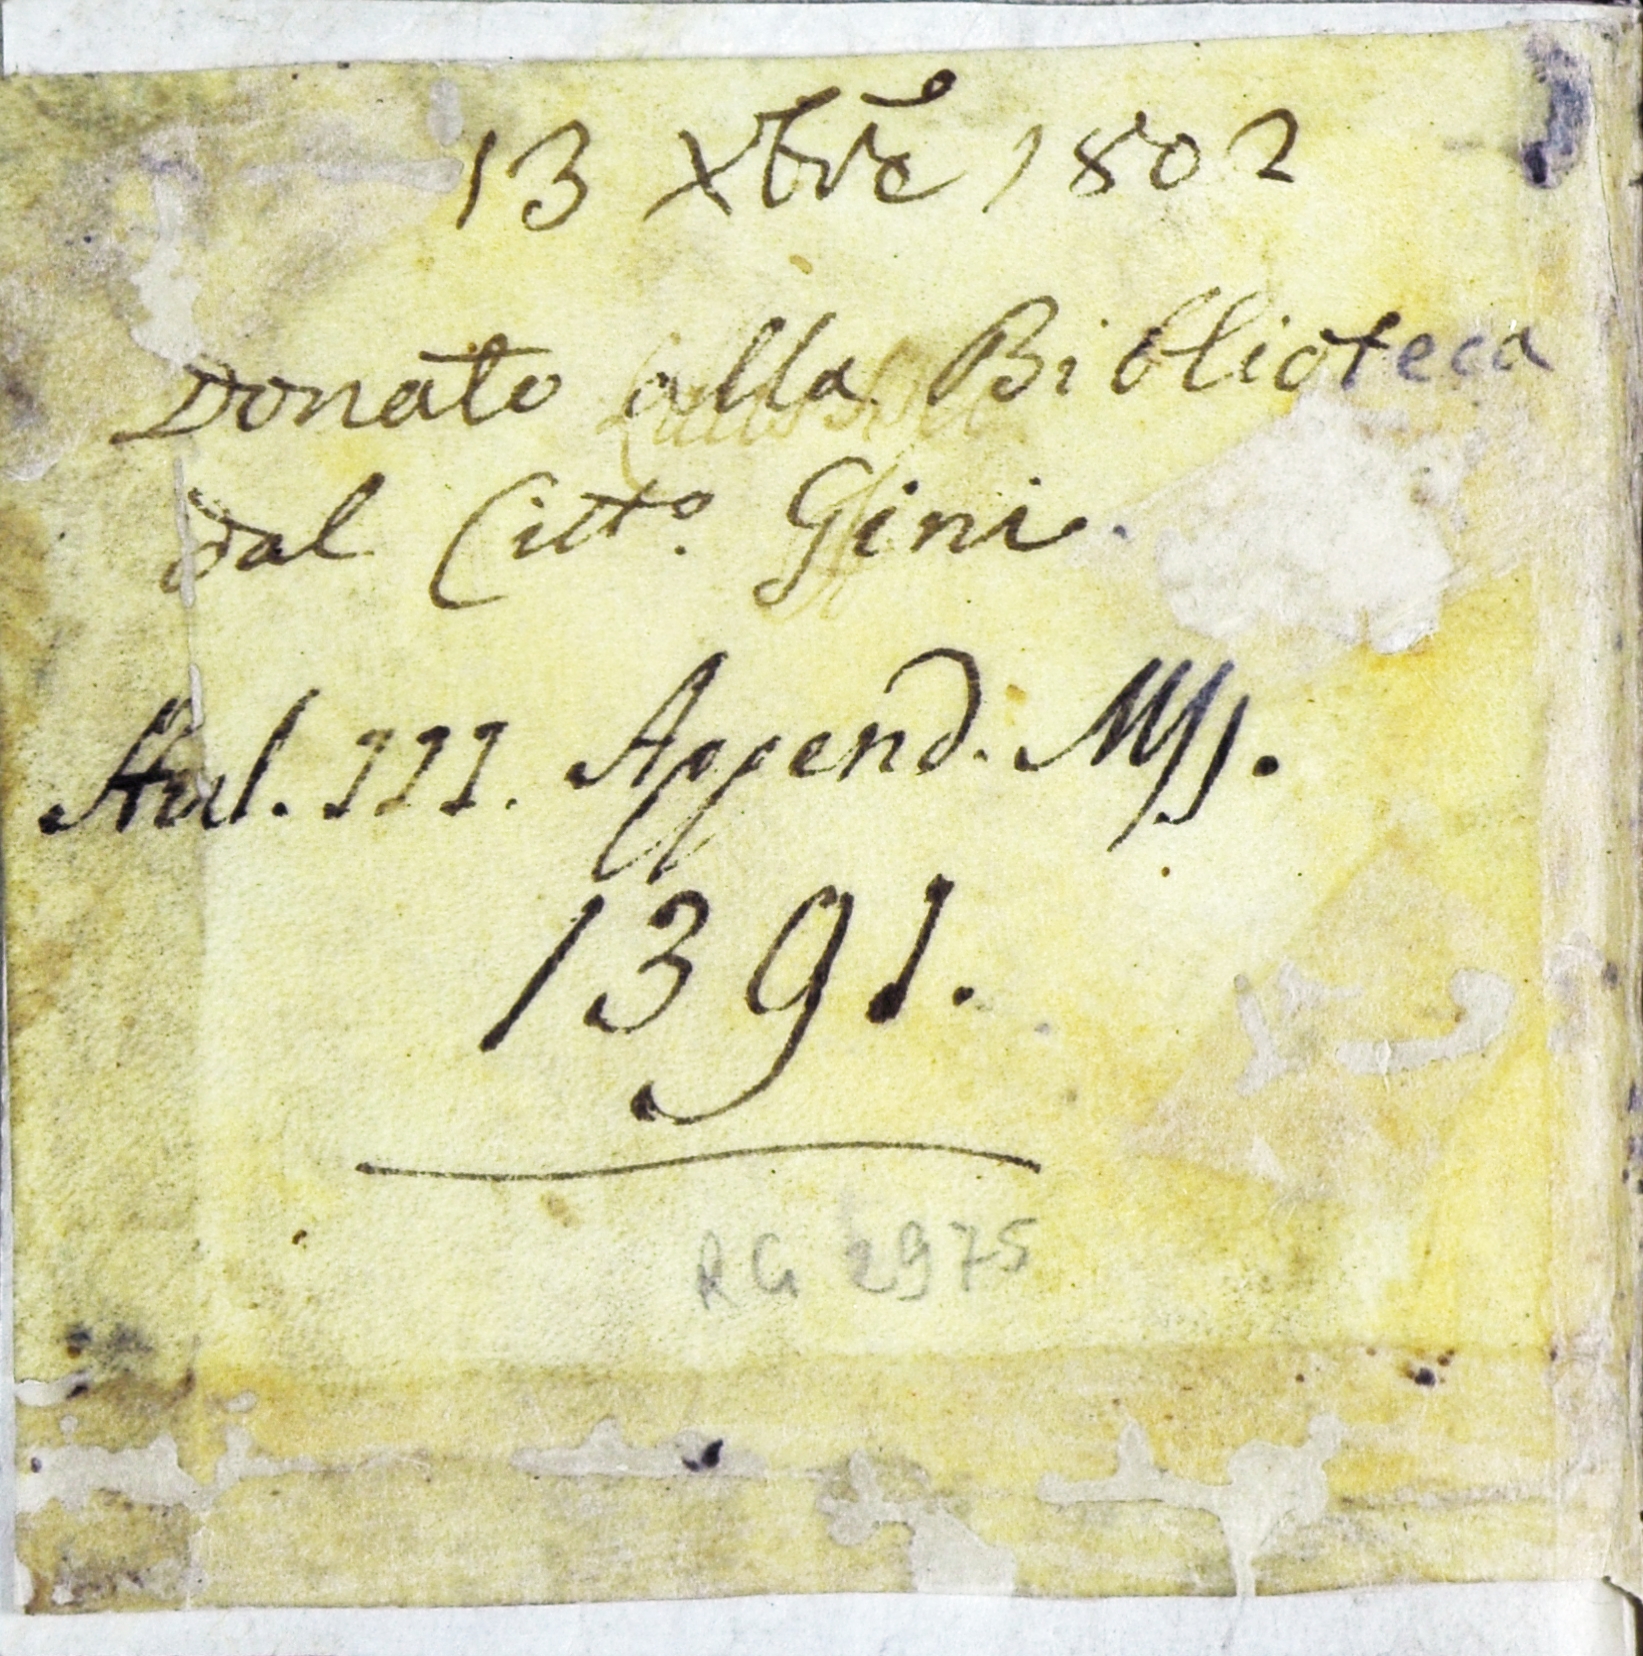 13 Xbre 1802
Donato alla Biblioteca
dal Citto. Gini.
Aul. III. Append. Mss.
1391.
RG 2975